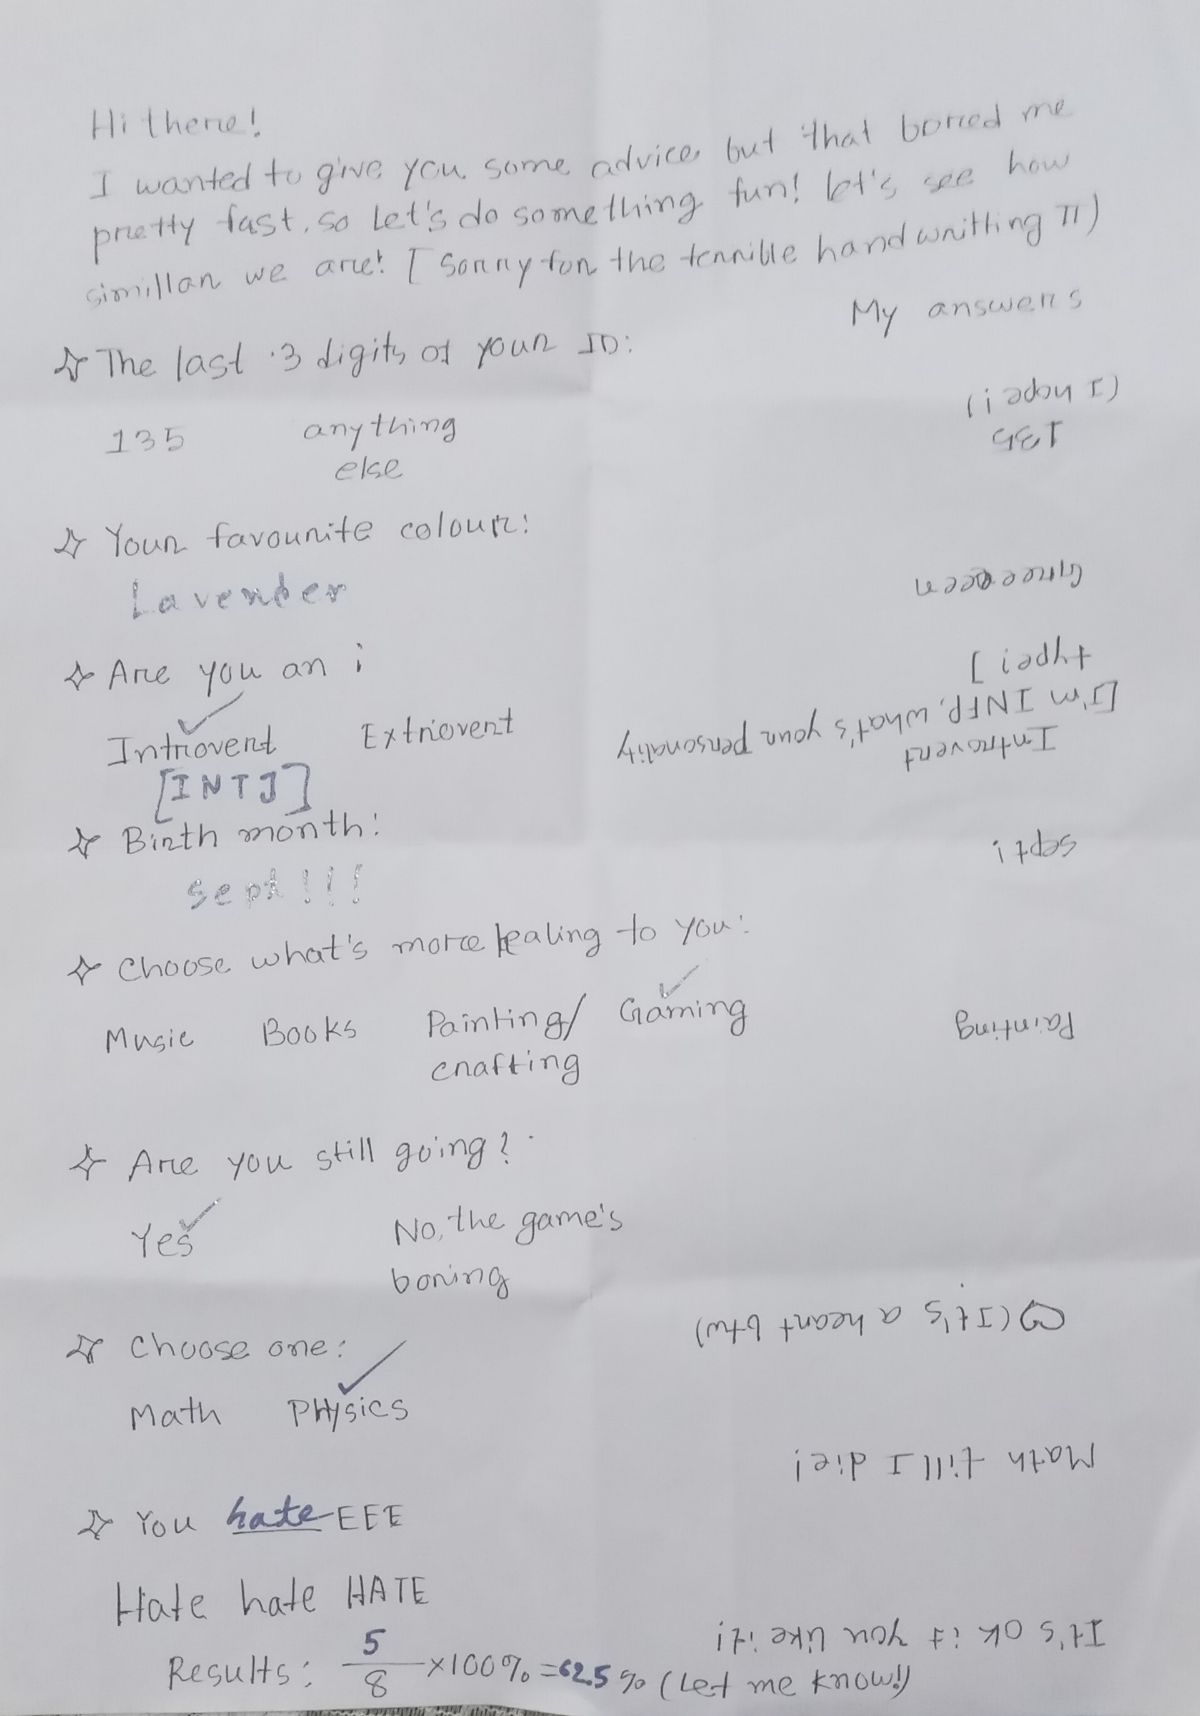 Hi there!
I wanted to give you some advice but that bored me
pretty fast, so Let's do something fun! let's see how
simillar we are! [Sorry for the terrible handwritting TT)
My answers
The last 3 digits of your ID:
(I hope!)
135 anything
else
135
Your favourite colour:
Lavender
Greeeeen
Are you an :
Introvert Extrovert
[INTJ]
Introvert
[I'm INFP, what's your personality
type!]
Birth month:
Sept!!!
Sept!
Choose what's more healing to you:
Music Books Painting/ Gaming
crafting
Painting
Are you still going?
Yes No, the game's
boring
♡(It's a heart btw)
Choose one:
Math PHysics
Math till I die!
You hate EEE
Hate hate HATE
It's ok if you like it!
Results: 5/8 ×100% = 62.5% (Let me know!)